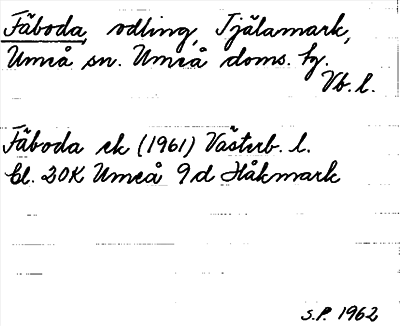 Fäboda, odling, Tjälamark,
Umeå sn. Umeå doms. hg.
Vb. l.
Fäboda ek (1961) Västerb. l.
bl. 20K Umeå 9d Håkmark
S.P. 1962